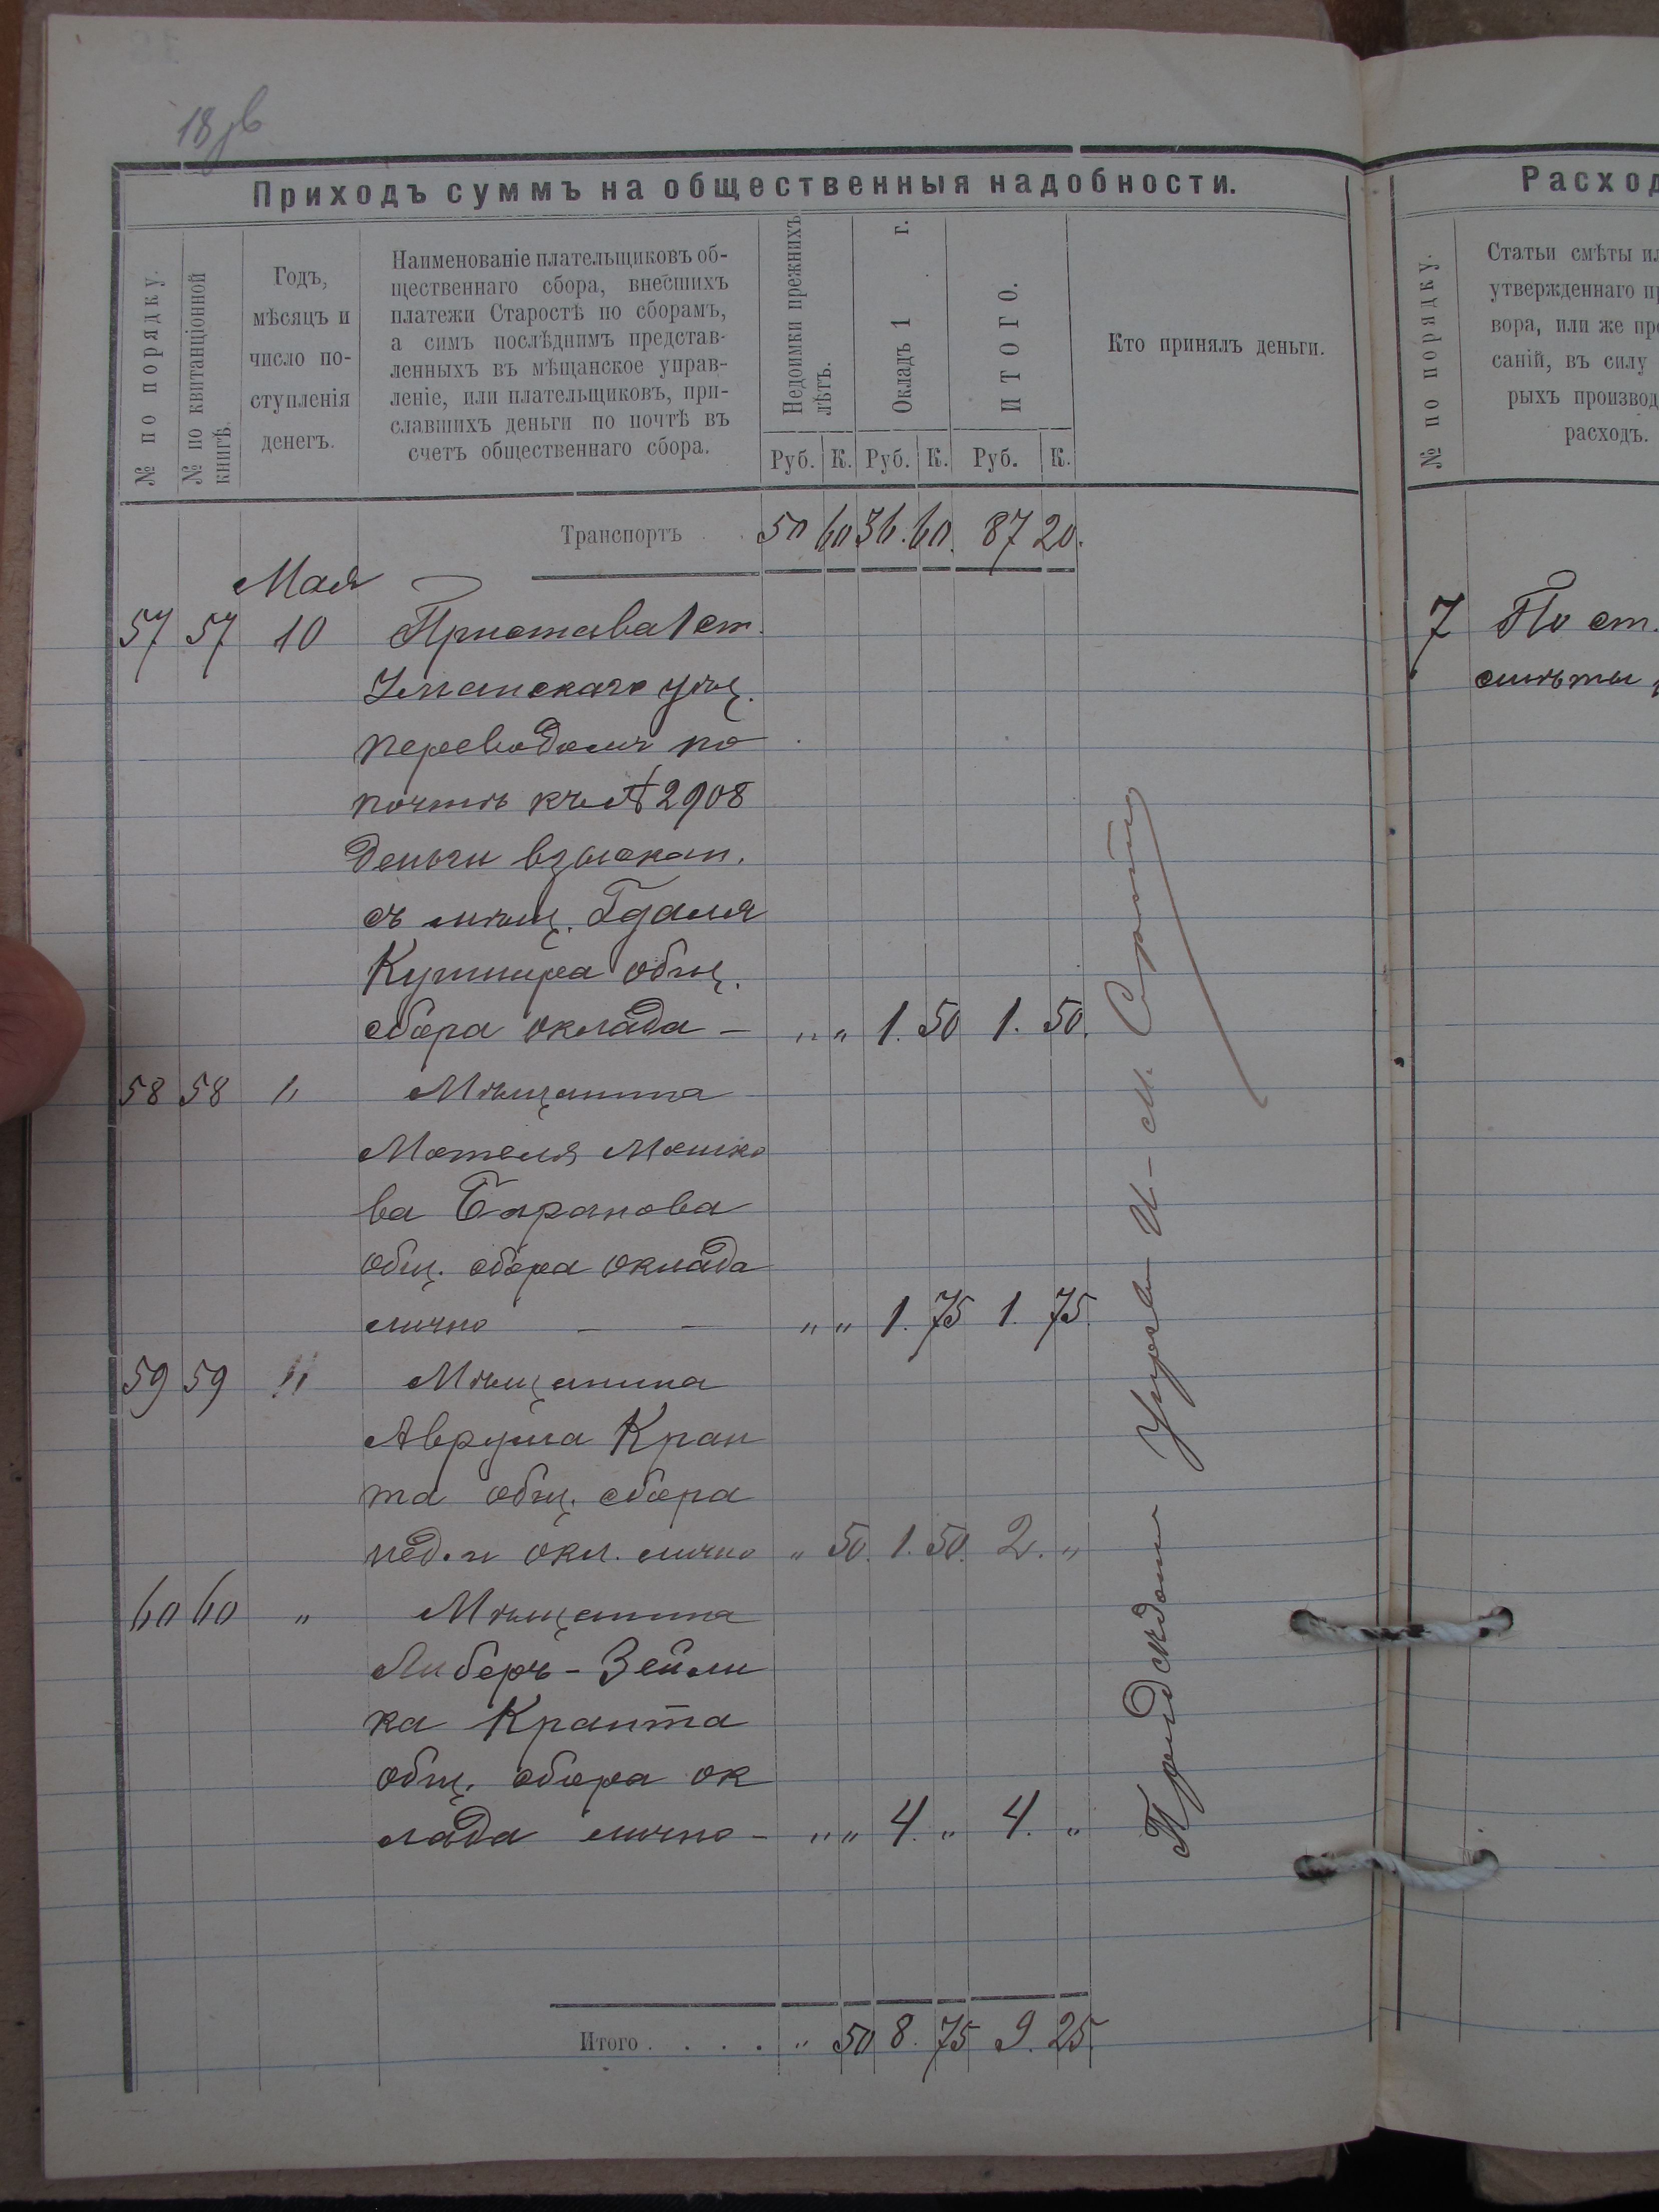 18 зв
Приходъ суммъ на общественныя надобности.
№ по порядку.
№ по квитанціонной
книгѣ.
Годъ,
мѣсяцъ и
число по-
ступленія
денегъ.
Наименованіе плательщиковъ об-
щественнаго сбора, внесшихъ
платежи Старостѣ по сборамъ,
а симъ послѣднимъ представ-
ленныхъ въ мѣщанское управ-
леніе, или плательщиковъ, при-
славшихъ деньги по почтѣ въ
счетъ общественнаго сбора.
Недоимки прежнихъ
лѣтъ.
Окладъ 1 г.
ИТОГО.
Кто принялъ деньги.
Руб. К. Руб. К. Руб. К.
Транспортъ 50 60 36. 60. 87 20.
Мая
57 57 10 Пристава 1 ст.
Уманскаго уѣз.
переводомъ по
почтѣ къ № 2908
деньги взыскан.
съ мѣщ. Гдаля
Кушнира общ.
сбора оклада — „ „ 1. 50 1. 50.
58 58 „ Мѣщанина
Мотеля Мошко
ва Баранова
общ. сбора оклада
лично — — „ „ 1. 75 1. 75.
59 59 „ Мѣщанина
Аврума Кран
та общ. сбора
нед. и окл. лично „ 50. 1. 50. 2. „
60 60 „ Мѣщанина
Либеръ-Зейли
ка Кранта
общ. сбора ок
лада лично — „ „ 4. „ 4. „
Итого . . . . „ 50 8. 75 9. 25.
Расход
№ по порядку.
Статьи смѣты ил
утвержденнаго пр
вора, или же пре
саній, въ силу
рыхъ производ
расходъ.
7 По ст.
смѣты